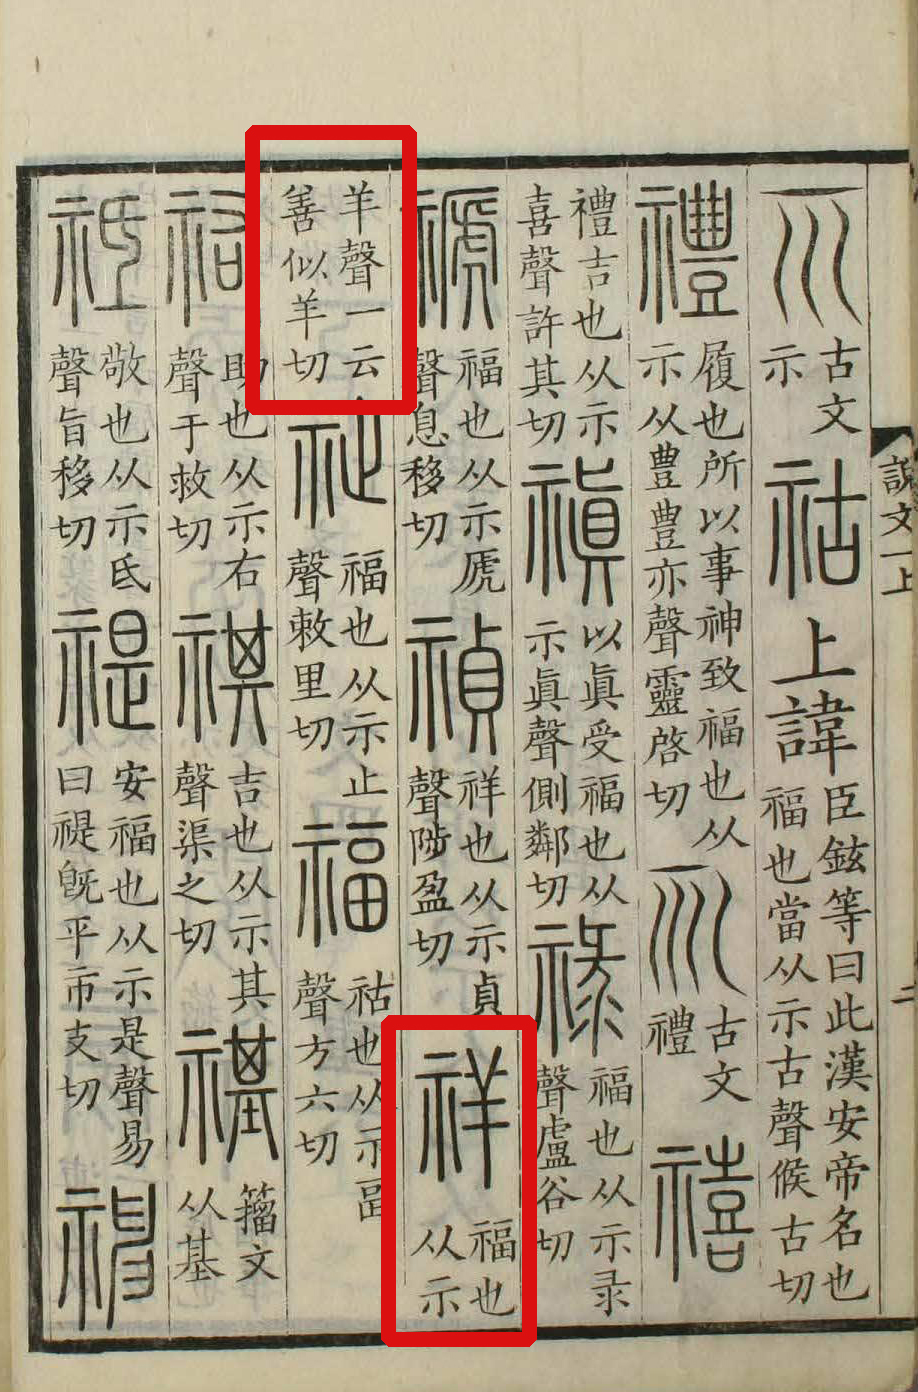 說文一上 二
𥘆古文示祜上諱臣鉉等曰此漢安帝名也福也當从示古聲候古切
禮履也所以事神致福也从示从豊豊亦聲靈啓切𠃞古文禮禧
禮吉也从示喜聲許其切禛以眞受福也从示眞聲側鄰切祿福也从示录聲盧谷切
禠福也从示虒聲息移切禎祥也从示貞聲陟盈切祥福也从示
羊聲一云善似羊切祉福也从示止聲敕里切福祜也从示畐聲方六切
祐助也从示右聲于救切祺吉也从示其聲渠之切禥籒文从基
祗敬也从示氐聲旨移切禔安福也从示是聲易曰禔旣平市支切神